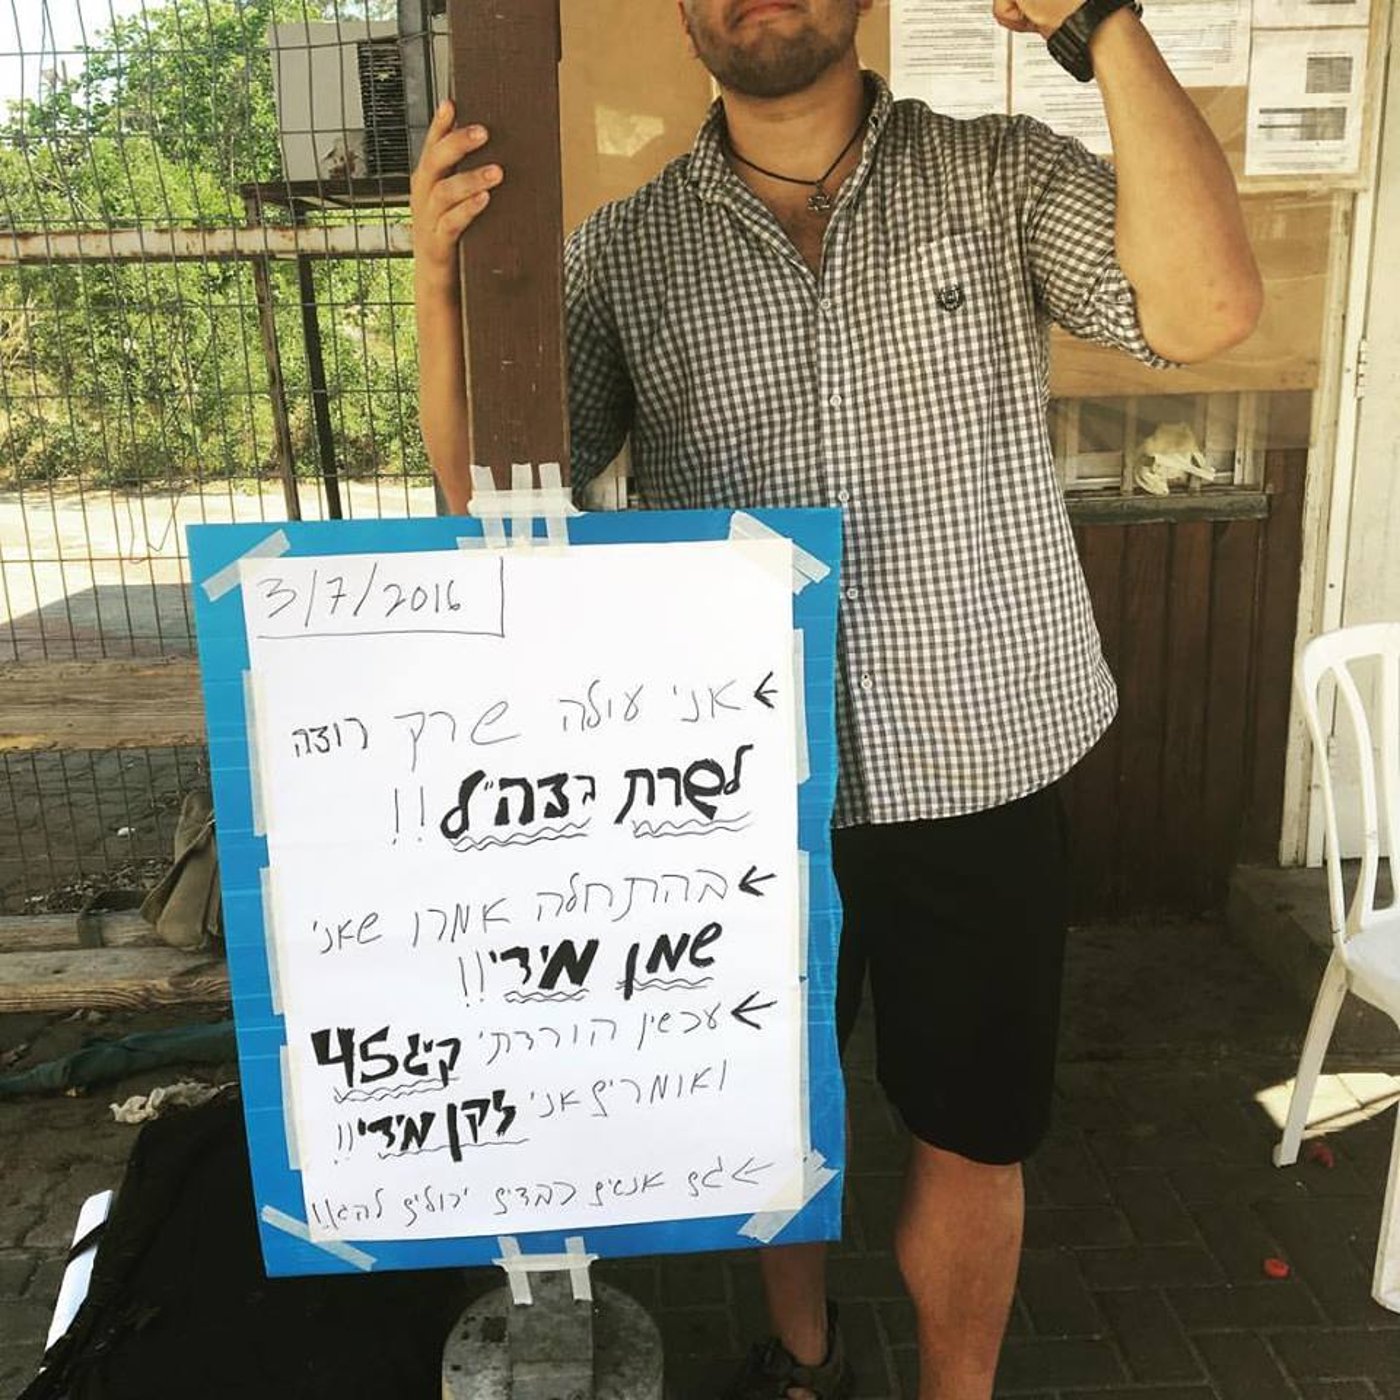 3/7/2016
אני עולה שרק רוצה
לשרת בצה"ל!!
בהתחלה אמרו שאני
שמן מידי!!
עכשיו הורדתי 45 ק"ג
ואומרים אני זקן מידי!!
גם אנשים כבדים יכולים להגן!!